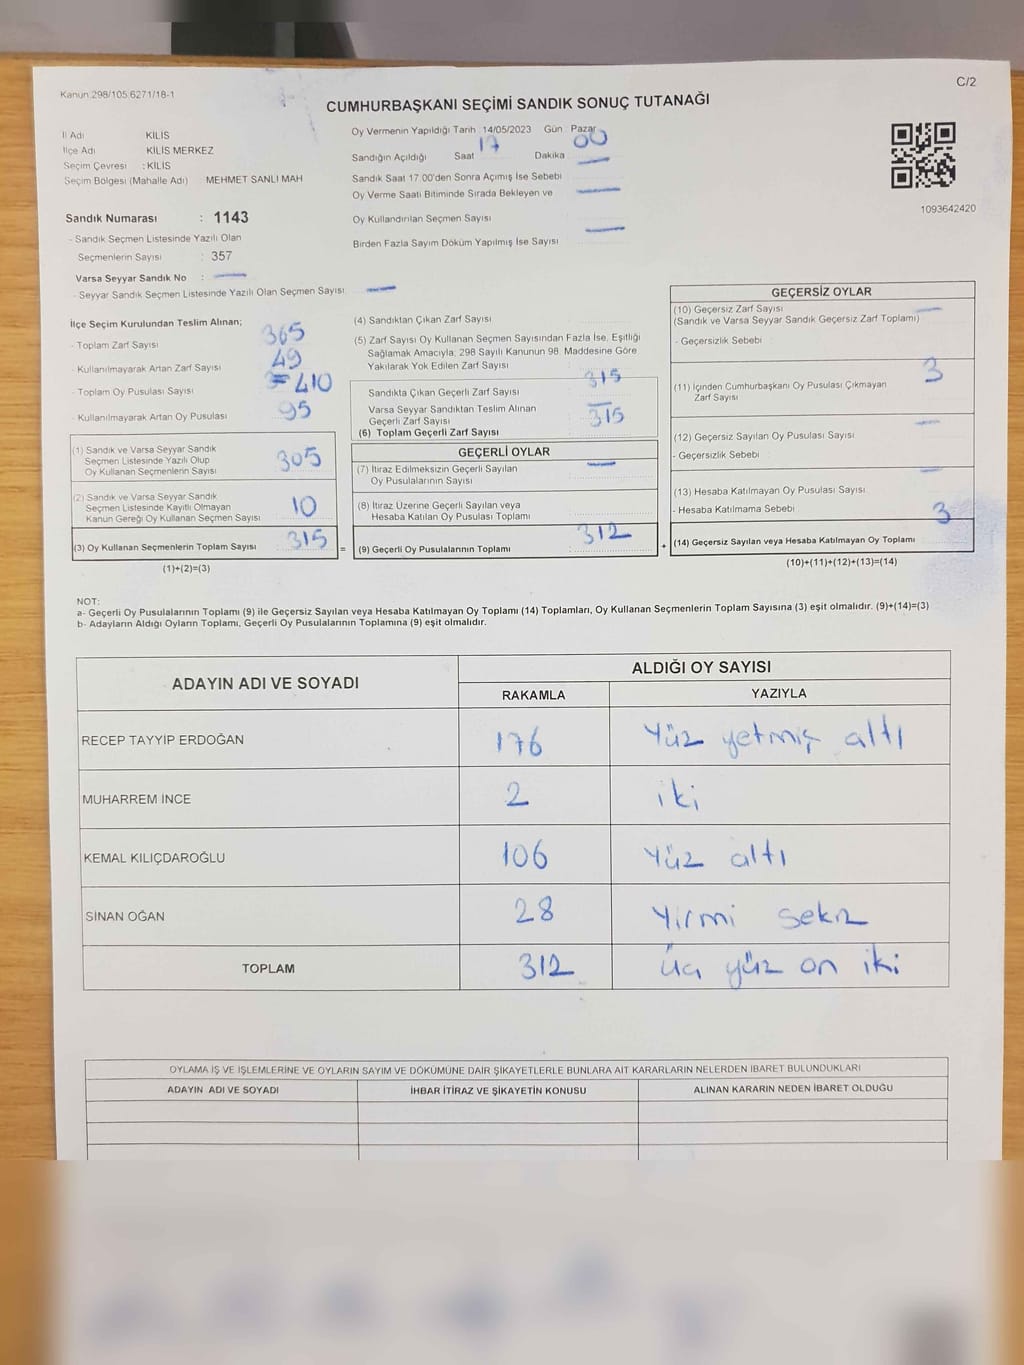 Kanun 298/105 6271/18-1
C/2
CUMHURBAŞKANI SEÇİMİ SANDIK SONUÇ TUTANAĞI
İl Adı KİLİS
İlçe Adı KİLİS MERKEZ
Seçim Çevresi : KİLİS
Seçim Bölgesi (Mahalle Adı) MEHMET SANLI MAH
Oy Vermenin Yapıldığı Tarih 14/05/2023 Gün Pazar
Sandığın Açıldığı Saat 17 Dakika 00
Sandık Saat 17.00'den Sonra Açımış İse Sebebi
Oy Verme Saati Bitiminde Sırada Bekleyen ve
Oy Kullandırılan Seçmen Sayısı
Birden Fazla Sayım Döküm Yapılmış İse Sayısı
1093642420
Sandık Numarası : 1143
- Sandık Seçmen Listesinde Yazılı Olan
Seçmenlerin Sayısı : 357
Varsa Seyyar Sandık No :
- Seyyar Sandık Seçmen Listesinde Yazılı Olan Seçmen Sayısı
İlçe Seçim Kurulundan Teslim Alınan;
- Toplam Zarf Sayısı 365
- Kullanılmayarak Artan Zarf Sayısı 49
- Toplam Oy Pusulası Sayısı 410
- Kullanılmayarak Artan Oy Pusulası 95
(1) Sandık ve Varsa Seyyar Sandık
Seçmen Listesinde Yazılı Olup
Oy Kullanan Seçmenlerin Sayısı 305
(2) Sandık ve Varsa Seyyar Sandık
Seçmen Listesinde Kayıtlı Olmayan
Kanun Gereği Oy Kullanan Seçmen Sayısı 10
(3) Oy Kullanan Seçmenlerin Toplam Sayısı 315 =
(1)+(2)=(3)
(4) Sandıktan Çıkan Zarf Sayısı
(5) Zarf Sayısı Oy Kullanan Seçmen Sayısından Fazla İse, Eşitliği
Sağlamak Amacıyla; 298 Sayılı Kanunun 98. Maddesine Göre
Yakılarak Yok Edilen Zarf Sayısı
Sandıkta Çıkan Geçerli Zarf Sayısı 315
Varsa Seyyar Sandıktan Teslim Alınan
Geçerli Zarf Sayısı
(6) Toplam Geçerli Zarf Sayısı 315
GEÇERLİ OYLAR
(7) İtiraz Edilmeksizin Geçerli Sayılan
Oy Pusulalarının Sayısı
(8) İtiraz Üzerine Geçerli Sayılan veya
Hesaba Katılan Oy Pusulası Toplamı
(9) Geçerli Oy Pusulalarının Toplamı 312 +
GEÇERSİZ OYLAR
(10) Geçersiz Zarf Sayısı
(Sandık ve Varsa Seyyar Sandık Geçersiz Zarf Toplamı)
- Geçersizlik Sebebi
(11) İçinden Cumhurbaşkanı Oy Pusulası Çıkmayan
Zarf Sayısı 3
(12) Geçersiz Sayılan Oy Pusulası Sayısı
- Geçersizlik Sebebi
(13) Hesaba Katılmayan Oy Pusulası Sayısı
- Hesaba Katılmama Sebebi
(14) Geçersiz Sayılan veya Hesaba Katılmayan Oy Toplamı 3
(10)+(11)+(12)+(13)=(14)
NOT:
a- Geçerli Oy Pusulalarının Toplamı (9) ile Geçersiz Sayılan veya Hesaba Katılmayan Oy Toplamı (14) Toplamları, Oy Kullanan Seçmenlerin Toplam Sayısına (3) eşit olmalıdır. (9)+(14)=(3)
b- Adayların Aldığı Oyların Toplamı, Geçerli Oy Pusulalarının Toplamına (9) eşit olmalıdır.
ADAYIN ADI VE SOYADI ALDIĞI OY SAYISI
RAKAMLA YAZIYLA
RECEP TAYYİP ERDOĞAN 176 Yüz yetmiş altı
MUHARREM İNCE 2 iki
KEMAL KILIÇDAROĞLU 106 Yüz altı
SİNAN OĞAN 28 Yirmi sekiz
TOPLAM 312 Üç yüz on iki
OYLAMA İŞ VE İŞLEMLERİNE VE OYLARIN SAYIM VE DÖKÜMÜNE DAİR ŞİKAYETLERLE BUNLARA AİT KARARLARIN NELERDEN İBARET BULUNDUKLARI
ADAYIN ADI VE SOYADI İHBAR İTİRAZ VE ŞİKAYETİN KONUSU ALINAN KARARIN NEDEN İBARET OLDUĞU